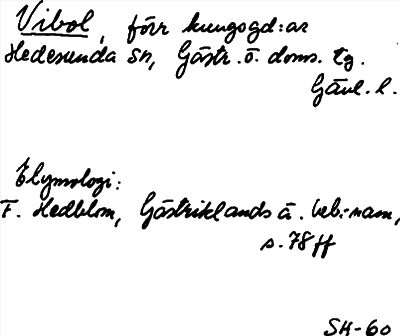 Vibol, förr kungsgd:ar
Hedesunda sn, Gästr. ö. doms. tg.
Gävl. l.
Etymologi:
F. Hedblom, Gästriklands ä. beb:-namn,
s. 78 ff
SH-60